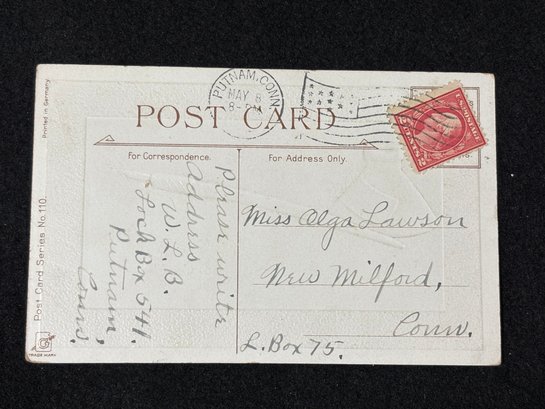 PUTNAM, CONN.
MAY 8
8-PM
POST CARD
For Correspondence.
For Address Only.
Please write
Address
W. L. B.
Lock Box 541.
Putnam,
Conn.
Miss Olga Lawson
New Milford,
Conn.
L. Box 75.
POSTAGE
2 CENTS 2
Printed in Germany
Post Card Series No. 110.
TRADE MARK